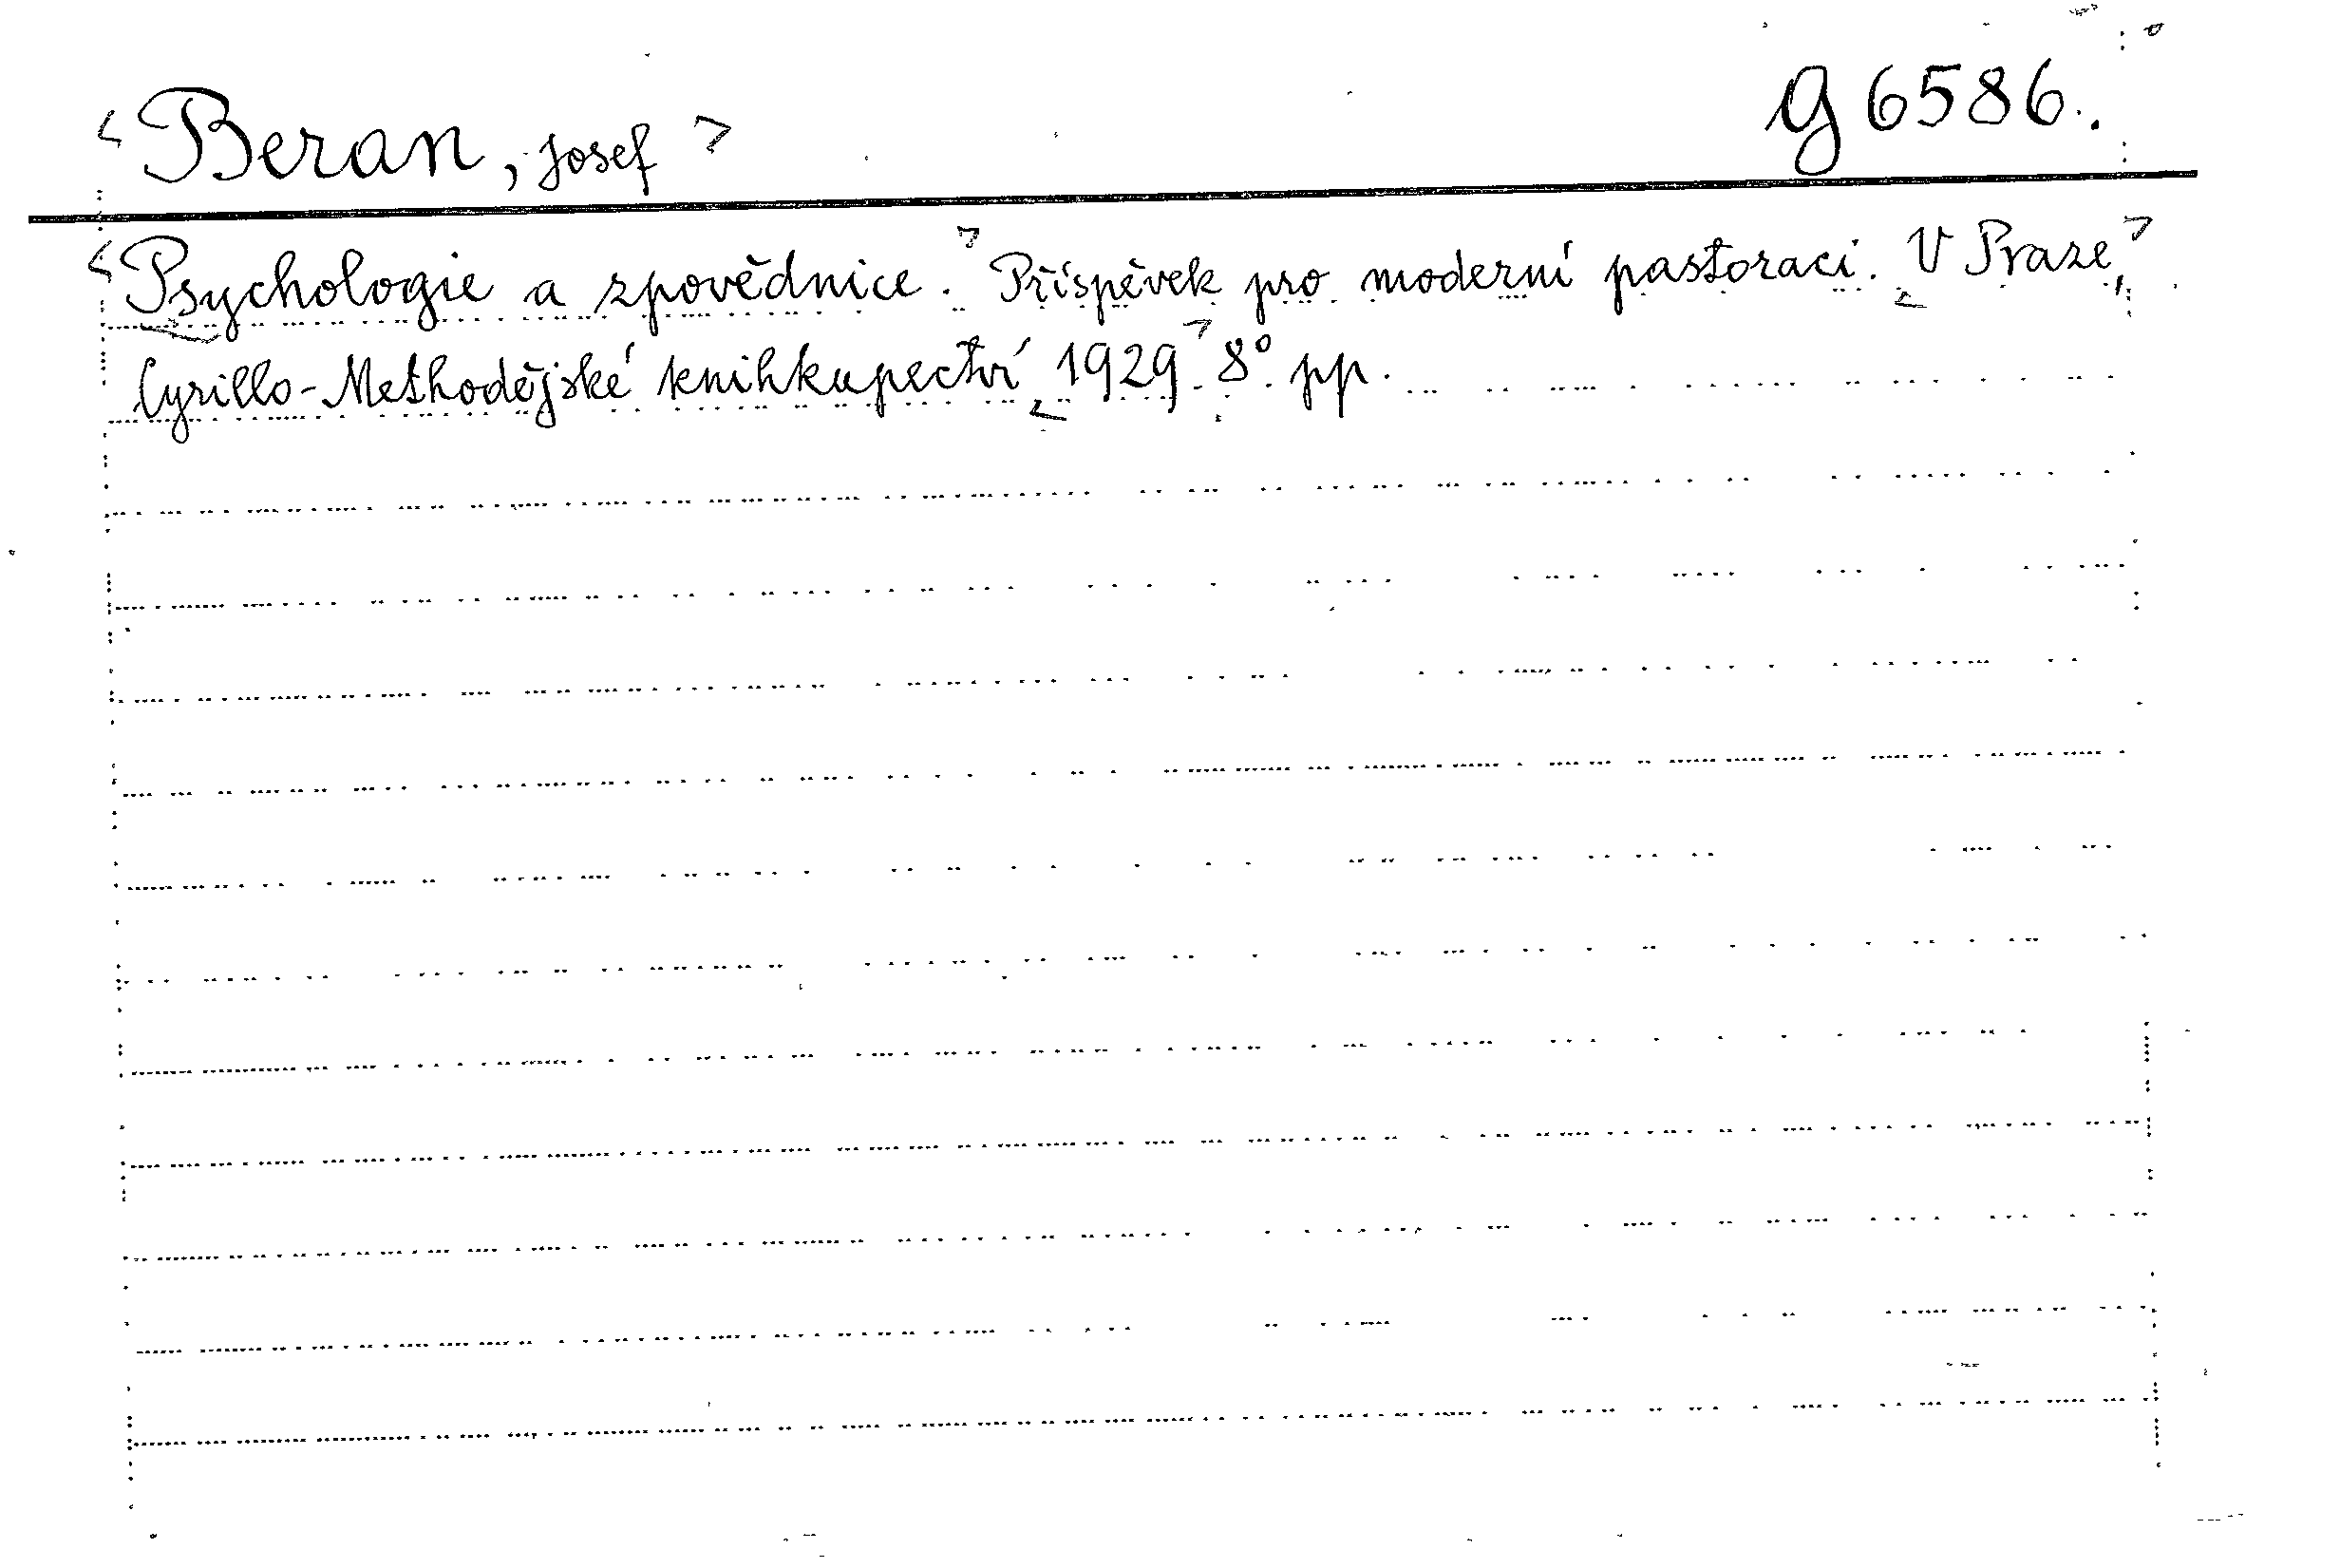 Beran, Josef
g 6586.
Psychologie a zpovědnice. Příspěvek pro moderní pastoraci. V Praze,
Cyrillo-Methodějské knihkupectví 1929. 8° pp.